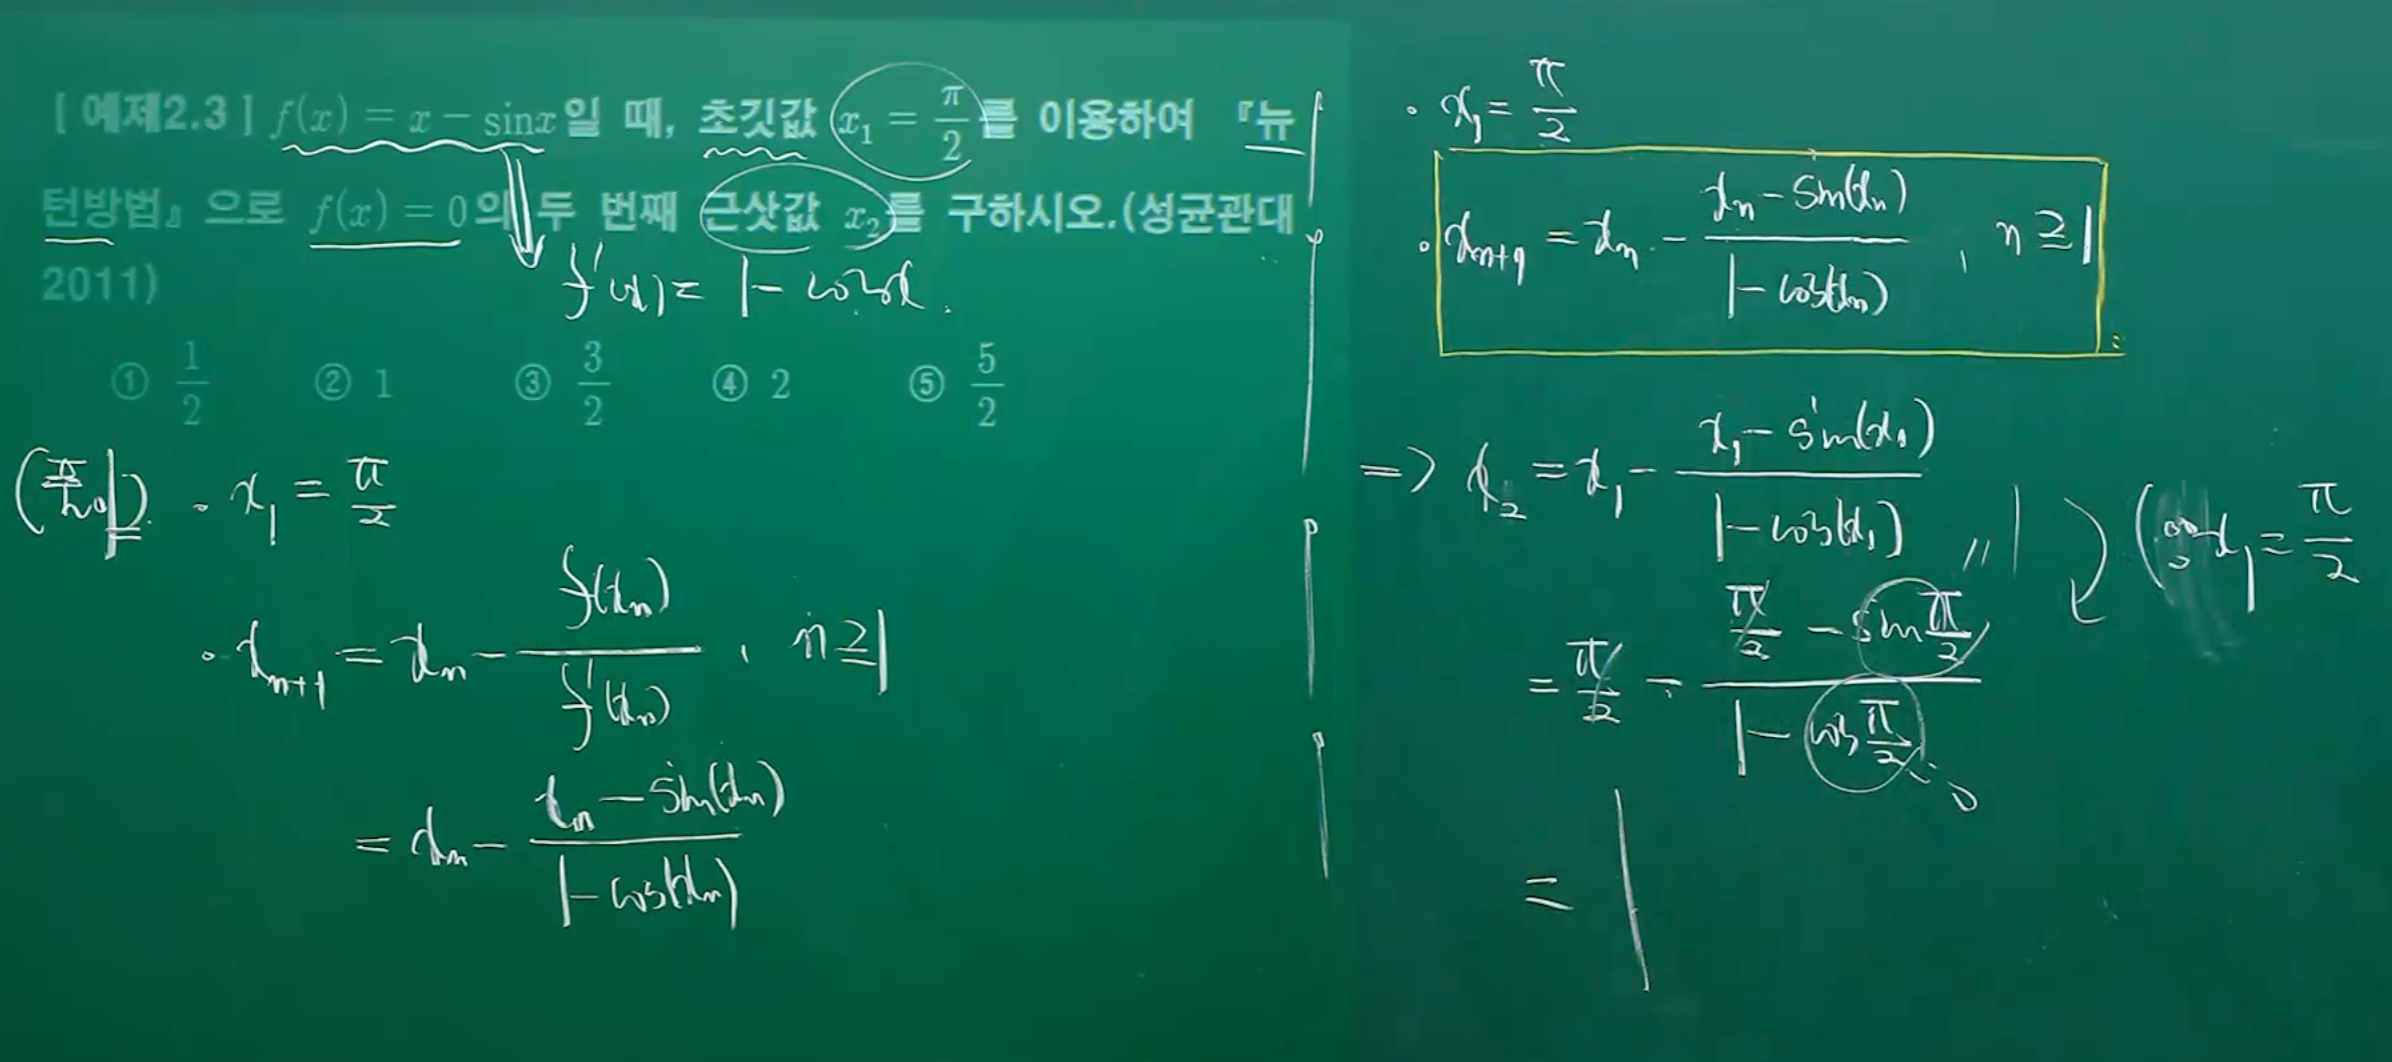 [ 예제2.3 ] f(x) = x − sinx 일 때, 초깃값 x₁ = π/2 를 이용하여 『뉴
턴방법』으로 f(x) = 0의 두 번째 근삿값 x₂를 구하시오.(성균관대
2011)
f'(x) = 1 − cosx.
① 1/2 ② 1 ③ 3/2 ④ 2 ⑤ 5/2
· x₁ = π/2
· xₙ₊₁ = xₙ − f(xₙ)/f'(xₙ), n ≥ 1
= xₙ − (xₙ − sin(xₙ))/(1 − cos(xₙ))
· x₁ = π/2
· xₙ₊₁ = xₙ − (xₙ − sin(xₙ))/(1 − cos(xₙ)), n ≥ 1
⇒ x₂ = x₁ − (x₁ − sin(x₁))/(1 − cos(x₁))
( x₁ = π/2
= π/2 − (π/2 − sin π/2)/(1 − cos π/2)
1
0
= 1